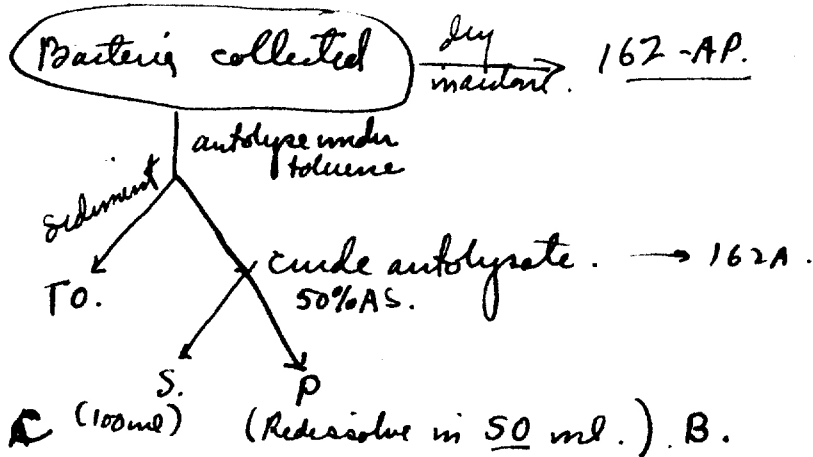 Bacteria collected dry in acetone. 162-AP.
autolyse under toluene
sediment
TO.
crude autolysate. → 162A.
50% AS.
S. P
C (100ml) (Redissolve in 50 ml.) B.